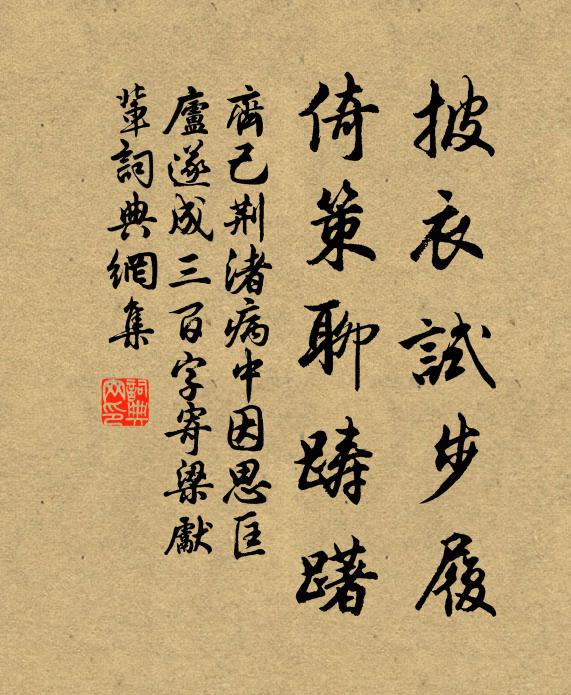 披衣試步履
倚策聊躊躇
齊己荊渚病中因思匡
廬遂成三百字寄梁獻
輩詞典網集
詞典网印